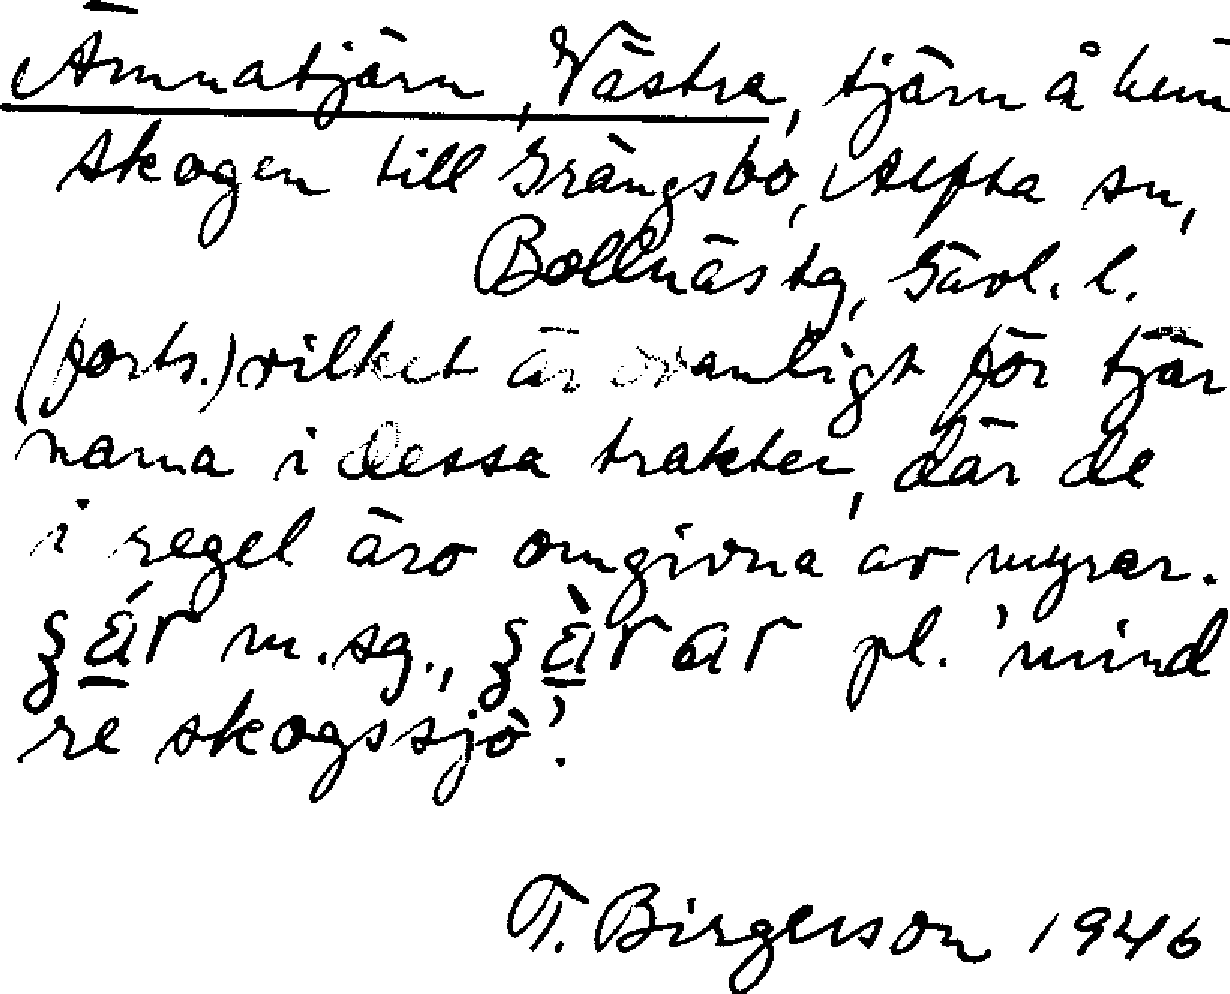 Ämnatjärn, Västra, tjärn å hem
skogen till Grängsbo, Alfta sn,
Bollnäs tg, Gävl. l.
(forts.) vilket är ovanligt för tjär
narna i dessa trakter, där de
i regel äro omgivna av myrar.
m.sg., pl. 'mind
re skogssjö'.
T. Birgerson 1946